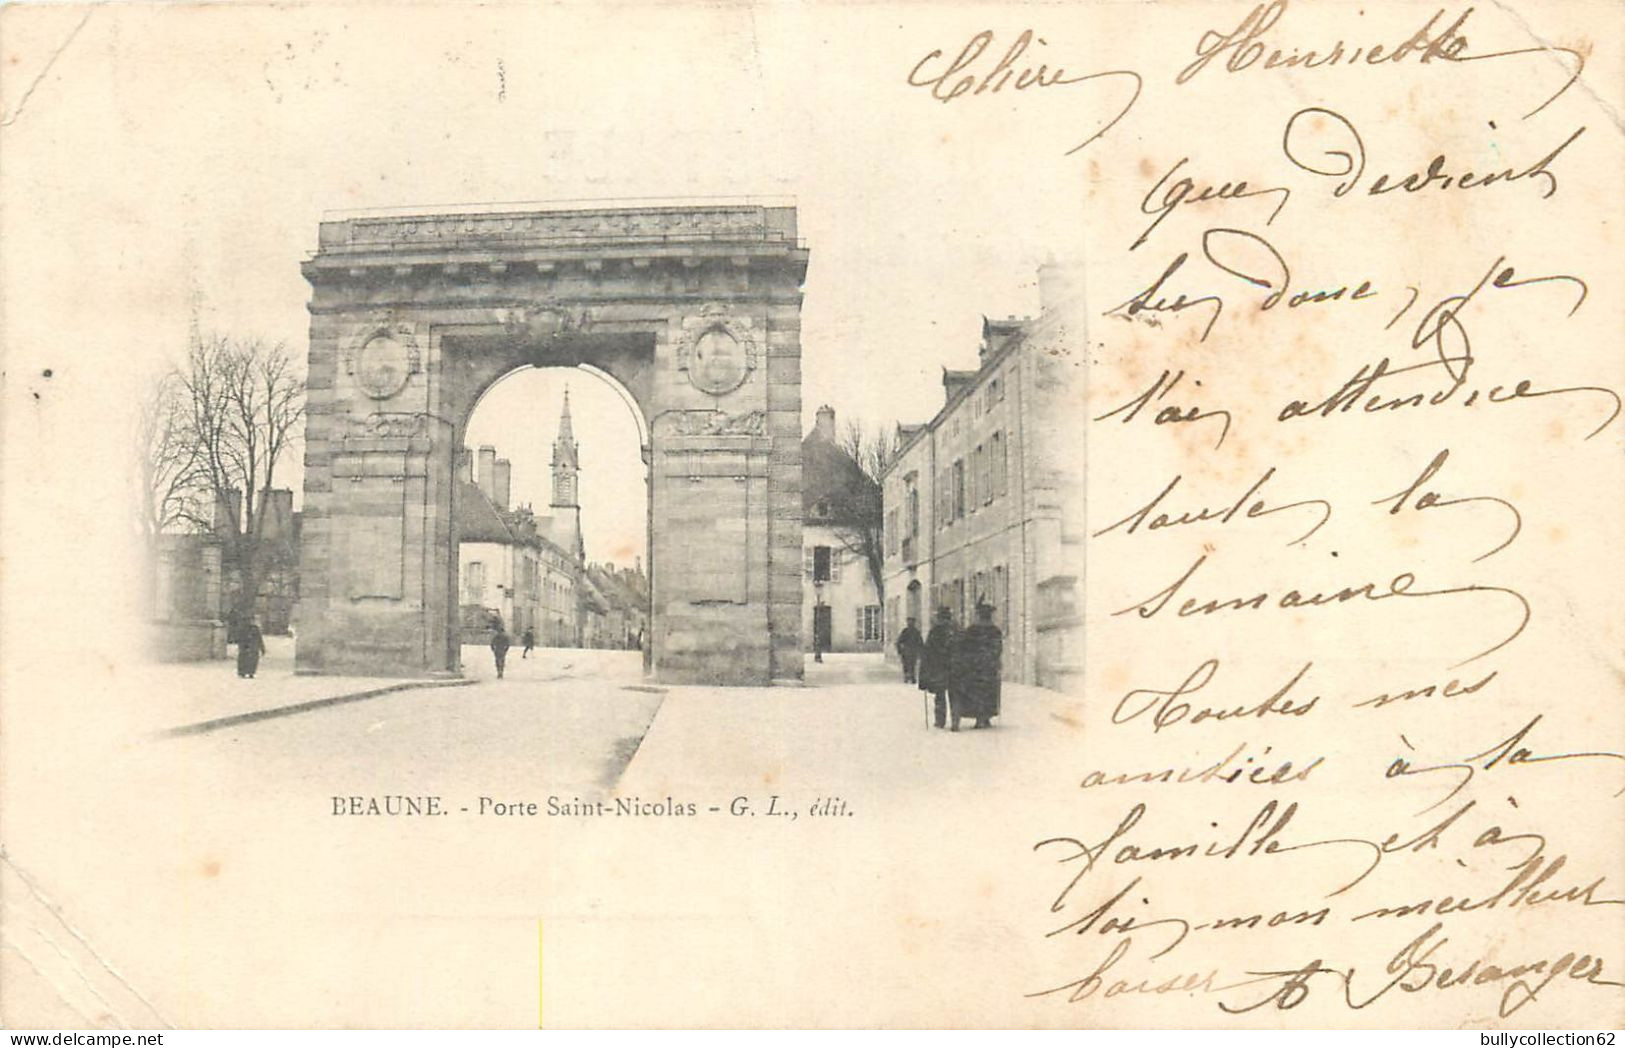 Chère Henriette
que devient
tu donc, je
t'ai attendue
toute la
semaine
Toutes mes
amitiés à ta
famille et à
toi mon meilleur
baiser A Beranger
BEAUNE. - Porte Saint-Nicolas - G. L., édit.
bullycollection62